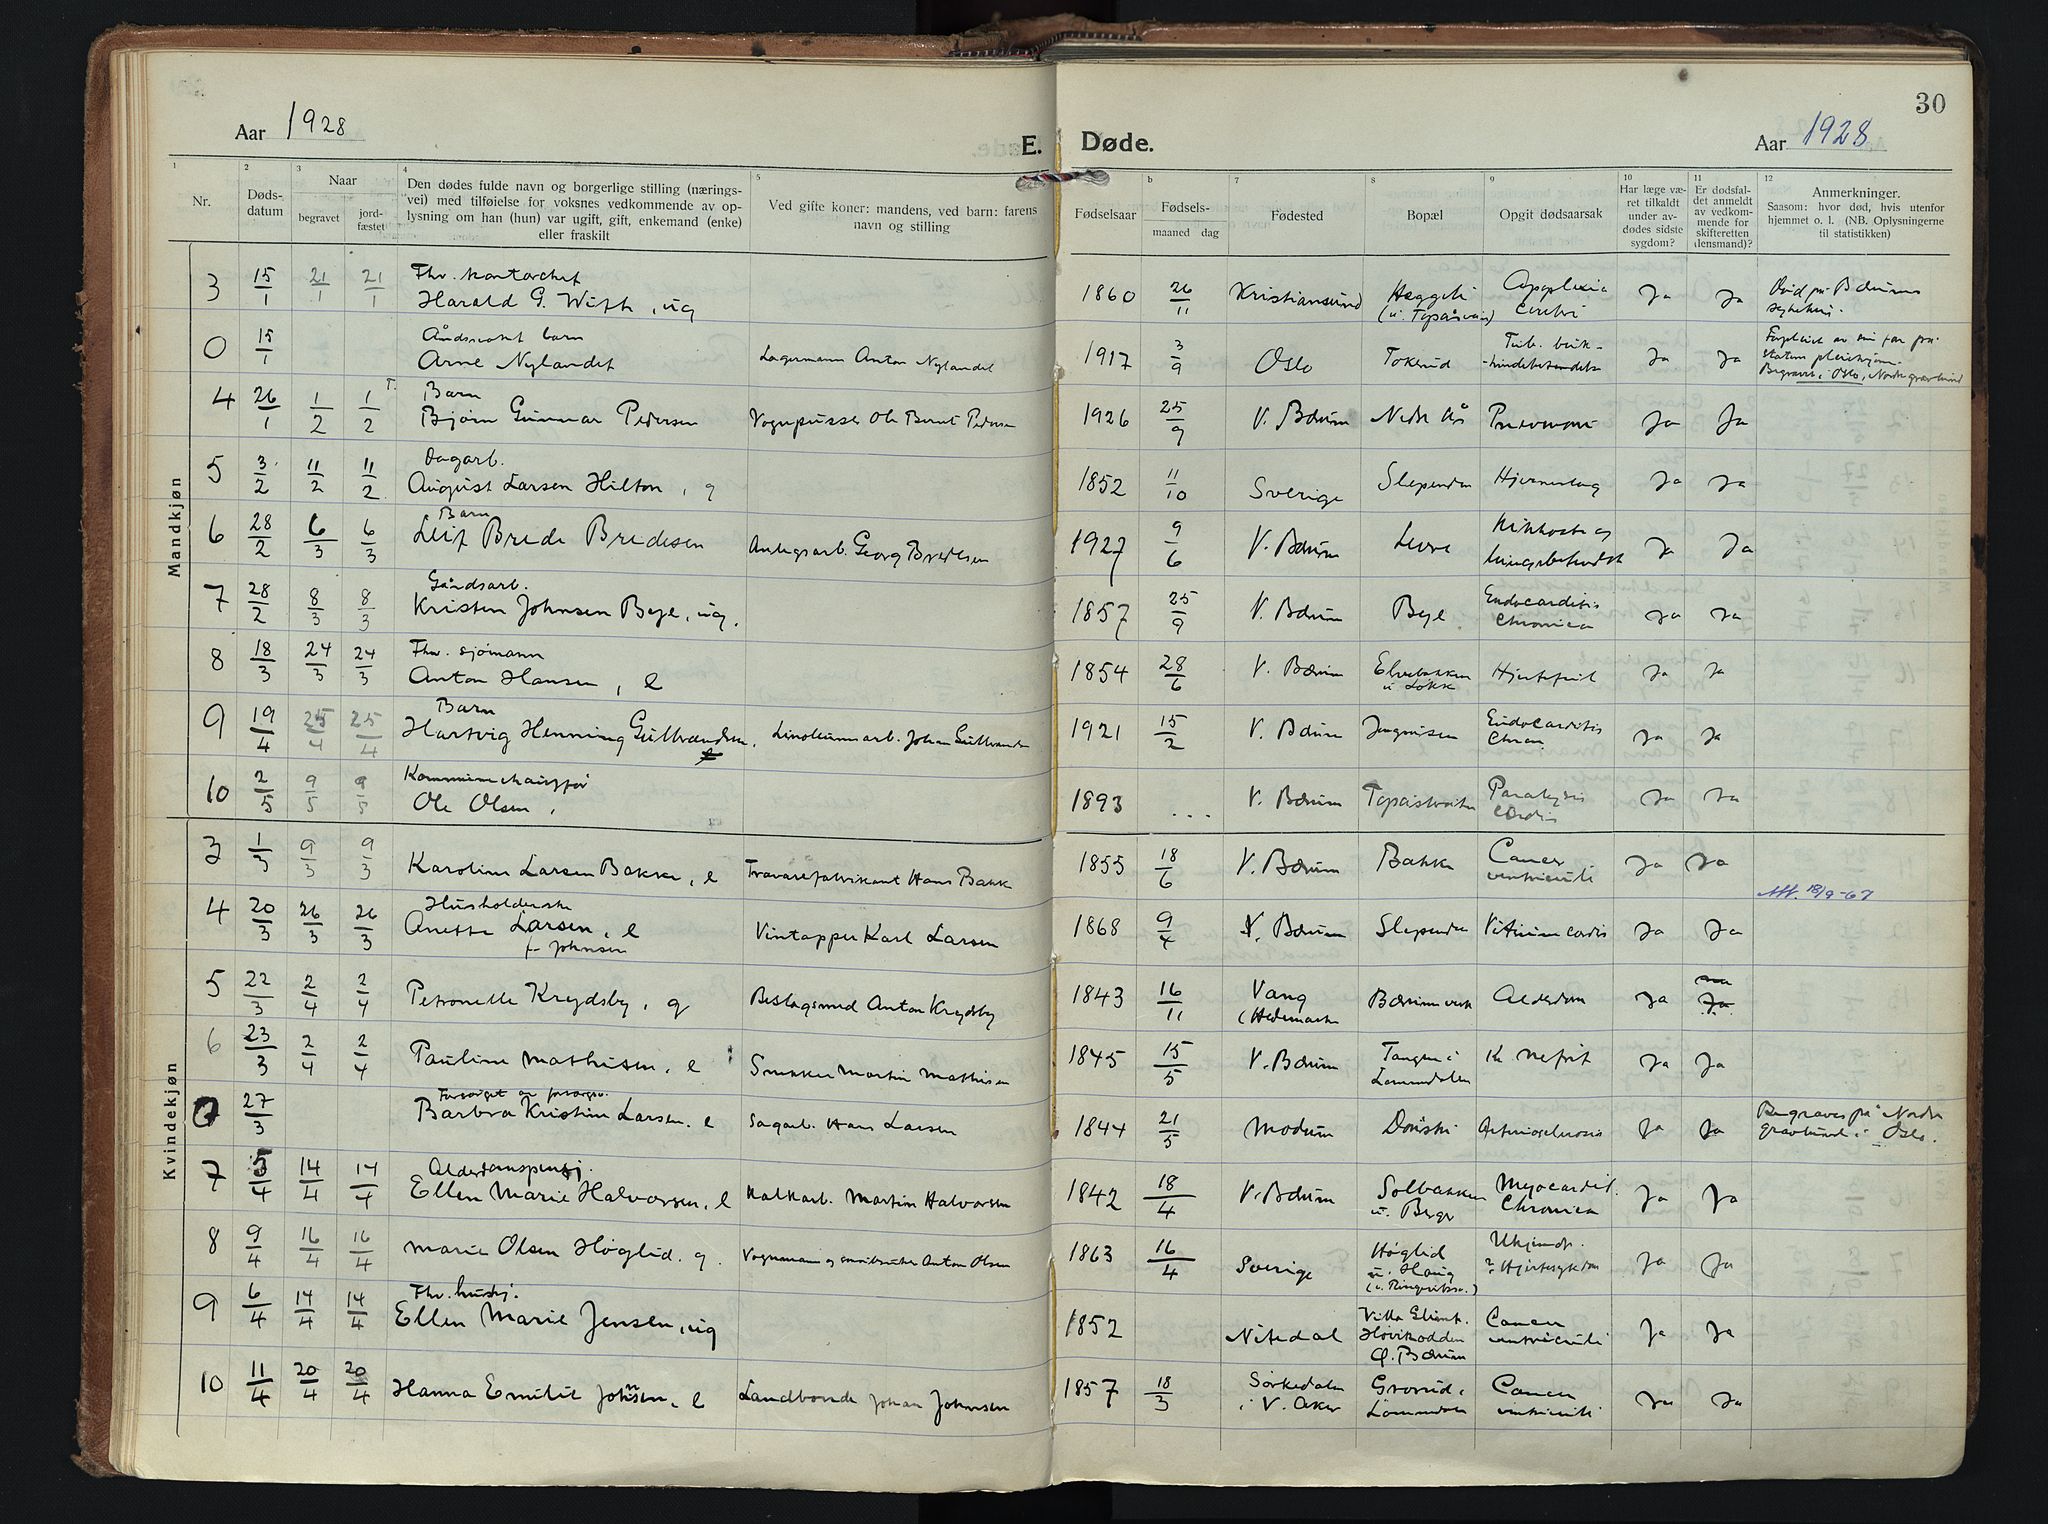 Aar 1928
E.
Døde.
Aar 1928
30
1 2 3 4 5
Nr.
Døds-
datum
Naar
begravet
jord-
fæstet
Den dødes fulde navn og borgerlige stilling (nærings-
vei) med tilføielse for voksnes vedkommende av op-
lysning om han (hun) var ugift, gift, enkemand (enke)
eller fraskilt
Ved gifte koner: mandens, ved barn: farens
navn og stilling
b 7 8 9 10 11 12
Fødselsaar
Fødsels-
maaned dag
Fødested
Bopæl
Opgit dødsaarsak
Har læge væ-
ret tilkaldt
under av-
dødes sidste
sygdom?
Er dødsfal-
det anmeldt
av vedkom-
mende for
skifteretten
(lensmand)?
Anmerkninger.
Saasom: hvor død, hvis utenfor
hjemmet o. l. (NB. Oplysningerne
til statistikken)
Mandkjøn
3 15/1 21/1 21/1 Fhv.
Harald G. , ug
1860 26/11 Kristiansund Apoplexia cerebri Ja Ja Død på Bærums sykehus.
0 15/1 Åndssvakt barn
Arne Nylandet Lagermann Anton Nylandet
1917 3/9 Oslo Tokerud Tub. Ja Ja
Begravet i Oslo, Nordre gravlund
4 26/1 1/2 1/2 Barn
Bjørn Gunnar Pedersen Vognpusser Ole Bernt Pedersen
1926 25/9 V. Bærum Nedre Ås Pneumoni Ja Ja
5 3/2 11/2 11/2 Dagarb.
August Larsen Hilton, g
1852 11/10 Sverige Slependen Ja Ja
6 28/2 6/3 6/3 Barn
Leif Brede Bredesen Anlegsarb. Georg Bredesen
1927 9/6 V. Bærum Levre Kikhoste og Ja Ja
7 28/2 8/3 8/3 Gårdsarb.
Kristen Johnsen Beje, ug.
1857 25/9 V. Bærum Beje Endocarditis Chronica Ja Ja
8 18/3 24/3 24/3 Fhv. sjømann
Anton Hansen, e
1854 28/6 V. Bærum Elvebakken u. Løkke Hjertefeil Ja Ja
9 19/4 25/4 25/4 Barn
Hartvig Henning Gulbrandsen. Linoleumsarb. Johan Gulbrandsen
1921 15/2 V. Bærum Endocarditis Chron Ja Ja
10 2/5 9/5 9/5
Ole Olsen,
1893 ... V. Bærum Paralysis Cordis Ja Ja
Kvindekjøn
3 1/3 9/3 9/3 Karoline Larsen Bakke, e Trævarefabrikant Hans Bakke
1855 18/6 V. Bærum Bakke Cancer ventriculi Ja Ja
Att. 18/9-67
4 20/3 26/3 26/3 Husholderske
Anette Larsen, e
f. Johnsen
Vintapper Karl Larsen
1868 9/4 V. Bærum Slependen Vitium cordis Ja Ja
5 22/3 2/4 2/4 Petronelle Krydsby, g Beslagsmed Anton Krydsby
1843 16/11 Vang (Hedemarken Bærumsverk Alderdom Ja Ja
6 23/3 2/4 2/4 Pauline Mathisen, e Snekker Martin Mathisen
1845 15/5 V. Bærum Tangen i Lommedalen Kr. nefrit Ja Ja
0 27/3 Forsørget av forsorgsv.
Barbra Kristine Larsen. e Sagarb. Hans Larsen
1844 21/5 Modum Dønski Arteriosclerosis Ja Ja Begraves på Nordre gravlund i Oslo.
7 5/4 14/4 14/4 Alderdomspensj.
Ellen Marie Halvorsen, e Kalkarb. Martin Halvorsen
1842 18/4 V. Bærum Solbakken u. Berger Myocardit. Chronica Ja Ja
8 9/4 16/4 16/4 Marie Olsen Høglid. g. Vognmann og småbruker Anton Olsen
1863 16/4 Sverige Høglid u. Haug (u. Ringeriksv.) Ukjendt. ? Hjertesykdom Ja Ja
9 6/4 14/4 14/4 Fhv. hushj.
Ellen Marie Jensen, ug
1852 Nitedal Villa Høvikodden Ø. Bærum Cancer ventriculi Ja Ja
10 11/4 20/4 20/4 Hanna Emilie Johnsen, e Landbonde Johan Johnsen
1857 18/3 Sørkedalen i V. Aker Grorud i Lommedalen Cancer ventriculi Ja Ja